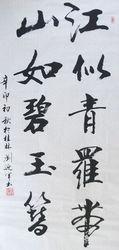 江似青羅帶
山如碧玉簪
辛卯初秋於桂林